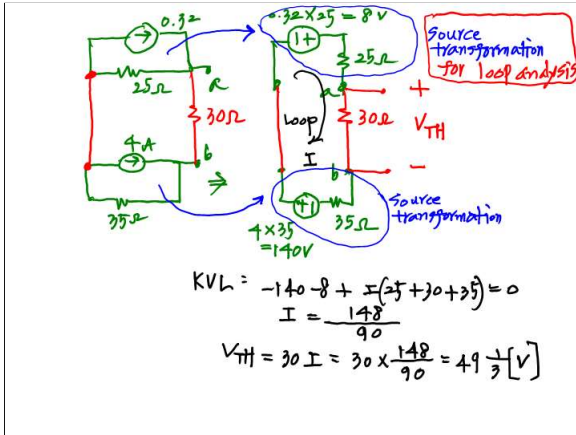 0.32
25Ω
a
30Ω
4A
b
35Ω
⇒
0.32×25 = 8V
1+
25Ω
a
+
30Ω
V_TH
Loop
I
b
-
+1
35Ω
4×35
=140V
Source
transformation
for loop analysis
Source
transformation
KVL: -140-8+ I(25+30+35)=0
I = 148/90
V_TH = 30 I = 30 × 148/90 = 49 1/3 [V]